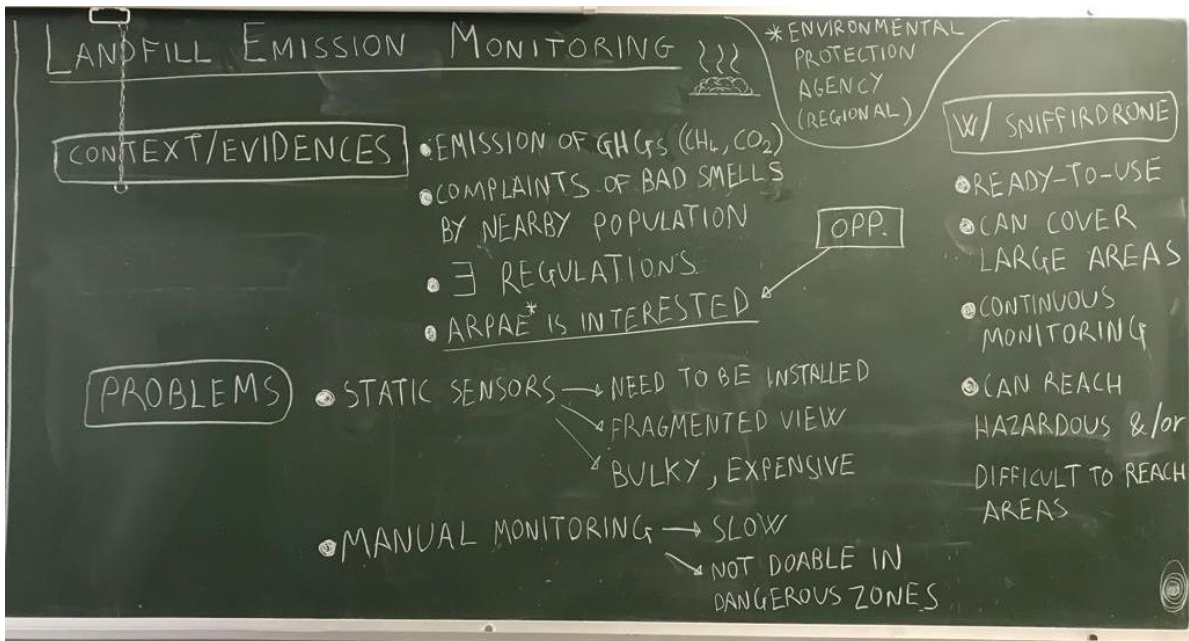 LANDFILL EMISSION MONITORING
* ENVIRONMENTAL
PROTECTION
AGENCY
(REGIONAL)
CONTEXT/EVIDENCES
• EMISSION OF GHGS (CH₄, CO₂)
• COMPLAINTS OF BAD SMELLS
BY NEARBY POPULATION
• ∃ REGULATIONS
• ARPAE* IS INTERESTED
OPP.
PROBLEMS
• STATIC SENSORS → NEED TO BE INSTALLED
↘ FRAGMENTED VIEW
↘ BULKY, EXPENSIVE
• MANUAL MONITORING → SLOW
↘ NOT DOABLE IN
DANGEROUS ZONES
W/ SNIFFIRDRONE
• READY-TO-USE
• CAN COVER
LARGE AREAS
• CONTINUOUS
MONITORING
• CAN REACH
HAZARDOUS &/or
DIFFICULT TO REACH
AREAS